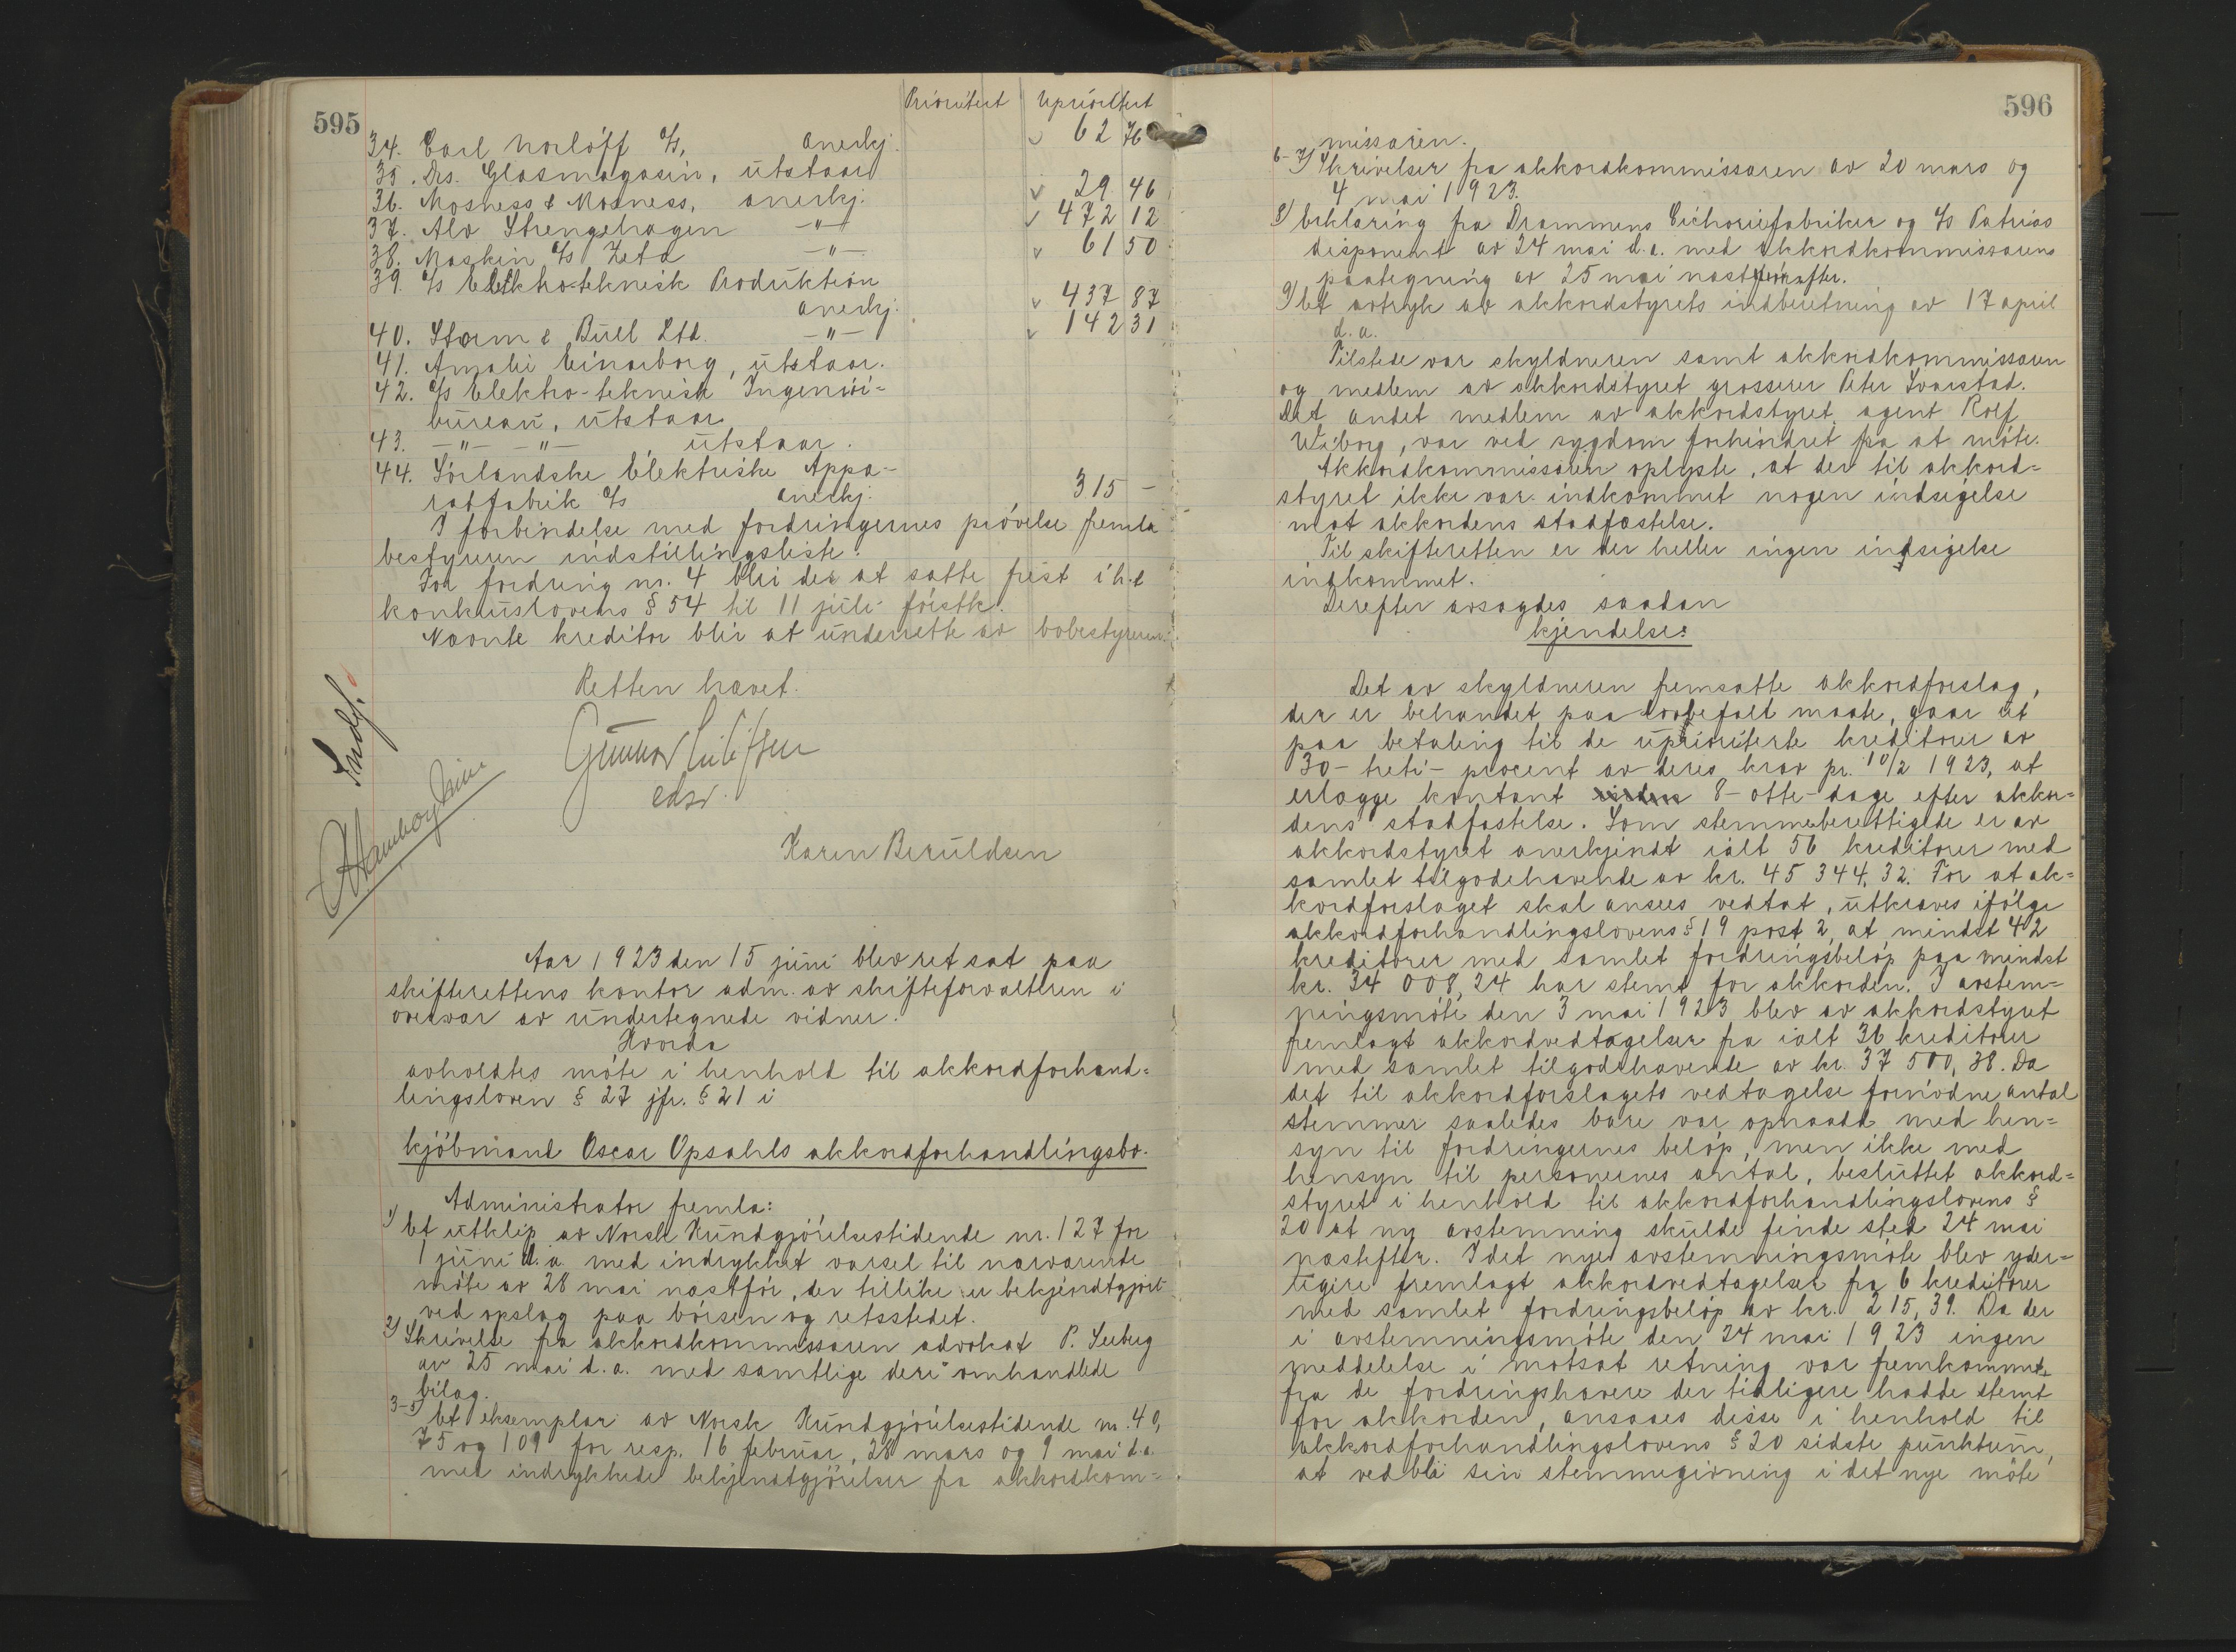 595
Prioritert Uprioritert
34. Carl Norløff A/S, anerkj. 62 76
35. Drs. Glasmagasin, utstaar
36. Mosness & Mosness, anerkj. 29 46
37. Alv Strengehagen —"— 472 12
38. Maskin A/S Zeta —"— 61 50
39. A/S Elektro-teknisk Produktion
anerkj. 437 87
40. Storm & Bull Ltd. —"— 142 31
41. Amalie Einarborg, utstaar.
42. A/S Elektro-teknisk Ingeniør=
bureau, utstaar
43. —"— —"— utstaar.
44. Sörlandske Elektriske Appa-
ratfabrik A/S anerkj. 315 —
I forbindelse med fordringernes prövelse fremla
bestyreren indstillingsliste.
For fordring nr. 4 blir der at sætte frist i h.t.
konkurslovens § 54 til 11 juli förstk.
Nævnte kreditor blir at underrette av bobestyreren.
Retten hævet.
edsv.
Karen Beruldsen
Aar 1923 den 15 juni blev ret sat paa
skifterettens kontor adm. av skifteforvalteren i
overvær av undertegnede vidner.
Hvorda
avholdtes möte i henhold til akkordforhand=
lingsloven § 27 jfr. § 21 i
kjöbmand Oscar Opsahls akkordforhandlingsbo.
Administrator fremla:
1) Et utklip av Norsk Kundgjörelsestidende nr. 127 for
1 juni d.a. med indrykket varsel til nærværende
möte av 28 mai næstför, der tillike er bekjendtgjort
ved opslag paa börsen og retsstedet.
2) Skrivelse fra akkordkommissæren advokat P. Seeberg
av 25 mai d.a. med samtlige deri omhandlede
bilag.
3-5) Et eksemplar av Norsk Kundgjörelsestidende nr. 40,
75 og 109 for resp. 16 februar, 28 mars og 9 mai d.a.
med indrykkede bekjendtgjörelser fra akkordkom=
596
missæren.
6-7) Skrivelser fra akkordkommissæren av 20 mars og
4 mai 1923.
8) Erklæring fra Drammens Cichoriefabriker og A/S Patrias
disponent av 24 mai d.a. med akkordkommissærens
paategning av 25 mai næstefter.
9) Et avtryk av akkordstyrets indberetning av 17 april
d.a.
Tilstede var skyldneren samt akkordkommissæren
og medlem av akkordstyret grosserer Peter Svarstad.
Det andet medlem av akkordstyret, agent Rolf
Wiborg, var ved sygdom forhindret fra at möte.
Akkordkommissæren oplyste, at der til akkord=
styret ikke var indkommet nogen indsigelse
mot akkordens stadfæstelse.
Til skifteretten er der heller ingen indsigelse
indkommet.
Derefter avsagdes saadan
kjendelse:
Det av skyldneren fremsatte akkordforslag,
der er behandlet paa lovbefalt maate, gaar ut
paa betaling til de uprioriterte kreditorer av
30 - treti - procent av deres krav pr. 10/2 1923, at
erlægge kontant 8 - otte - dage efter akkor=
dens stadfæstelse. Som stemmeberettigede er av
akkordstyret anerkjendt ialt 56 kreditorer med
samlet tilgodehavende av kr. 45 344,32. For at ak=
kordforslaget skal ansees vedtat, utkræves ifölge
akkordforhandlingslovens § 19 post 2, at mindst 42
kreditorer med samlet fordringsbelöp paa mindst
kr. 34 008,24 har stemt for akkorden. I avstem=
ningsmöte den 3 mai 1923 blev av akkordstyret
fremlagt akkordvedtagelser fra ialt 36 kreditorer
med samlet tilgodehavende av kr. 37 500,38. Da
det til akkordforslagets vedtagelse fornödne antal
stemmer saaledes bare var opnaadd med hen=
syn til fordringernes belöp, men ikke med
hensyn til personernes antal, besluttet akkord=
styret i henhold til akkordforhandlingslovens §
20 at ny avstemning skulde finde sted 24 mai
næstefter. I det nye avstemningsmöte blev yder=
ligere fremlagt akkordvedtagelser fra 6 kreditorer
med samlet fordringsbelöp av kr. 215,39. Da der
i avstemningsmöte den 24 mai 1923 ingen
meddelelse i motsat retning var fremkommet
fra de fordringshavere der tidligere hadde stemt
for akkorden, ansaaes disse i henhold til
akkordforhandlingslovens § 20 sidste punktum,
at vedbli sin stemmegivning i det nye möte